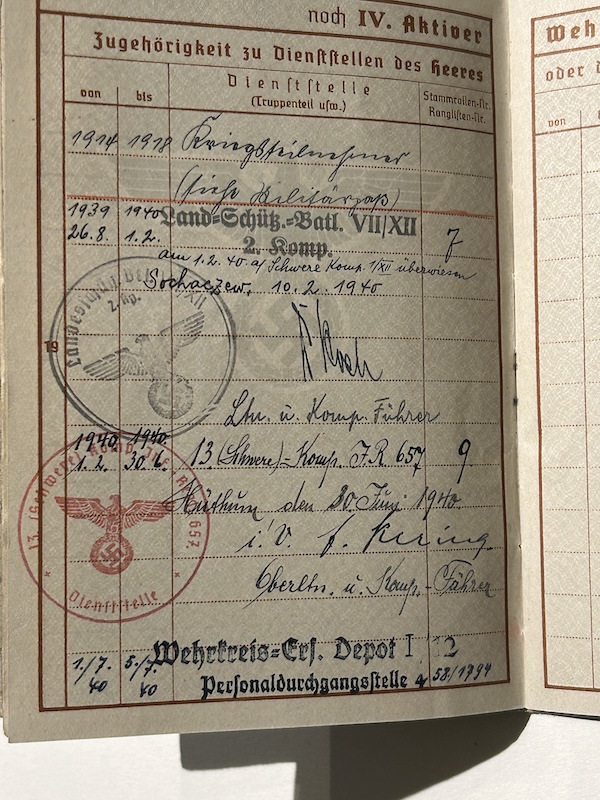 noch IV. Aktiver
Zugehörigkeit zu Dienststellen des Heeres
von bis Dienststelle (Truppenteil usw.) Stammrollen-Nr. Ranglisten-Nr.
1914 1918 Kriegsteilnehmer
(siehe Militärpaß)
1939 1940 Land-Schütz.-Batl. VII/XII
26.8. 1.2. 2. Komp. 7
am 1.2.40 a/Schwere Komp. 1/XII überwiesen
Sochaczew, 10.2.1940
Landesschütz
2. Kp.
19
Koch
Ltn. u. Komp. Führer
1940 1940
1.2. 30.6. 13 (Schwere)-Komp. J.R 657 9
den 30. Juni 1940
i.V.
Oberltn. u. Komp.-Führer
13. (Schwere) Komp. 657
Dienststelle
Wehrkreis-Ers. Depot I
1./7. 40 5./7. 40 Personaldurchgangsstelle 58/1794
Weh
oder d
von